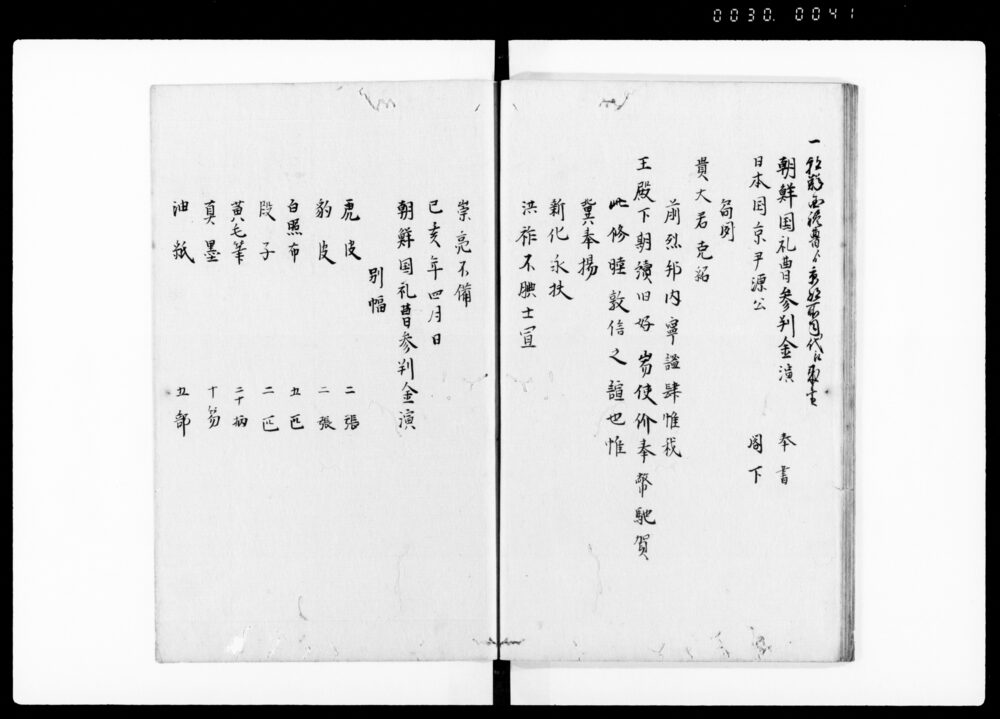 0030.0041
一
朝鮮国礼曹参判金演 奉書
日本国京尹源公 閤下
貴大君克紹
前烈邦内寧謐肆惟我
王殿下朝續旧好 耑使价奉幣馳賀
此修睦敦信之誼也惟
冀奉揚
新化永扶
洪祚不腆士宜
崇亮不備
己亥年四月日
朝鮮国礼曹参判金演
別幅
虎皮 二張
豹皮 二張
白照布 五匹
段子 二匹
黄毛筆 二十柄
真墨 十笏
油紙 五部